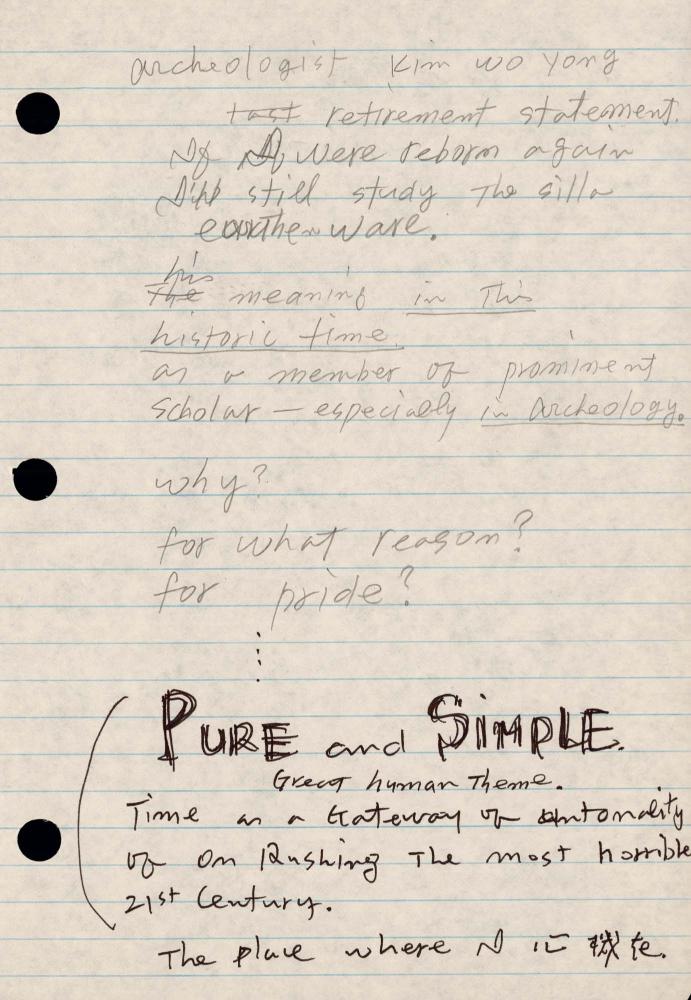 archeologist Kim wo yong
last retirement statement.
If I were reborn again
I'll still study The silla
earthenware.
his
the meaning in This
historic time.
as a member of prominent
scholar — especially in archeology.
why?
for what reason?
for pride?
PURE and SIMPLE.
Great human Theme.
Time as a Gateway of
of on Rushing The most horrible
21st Century.
The place where I 在.